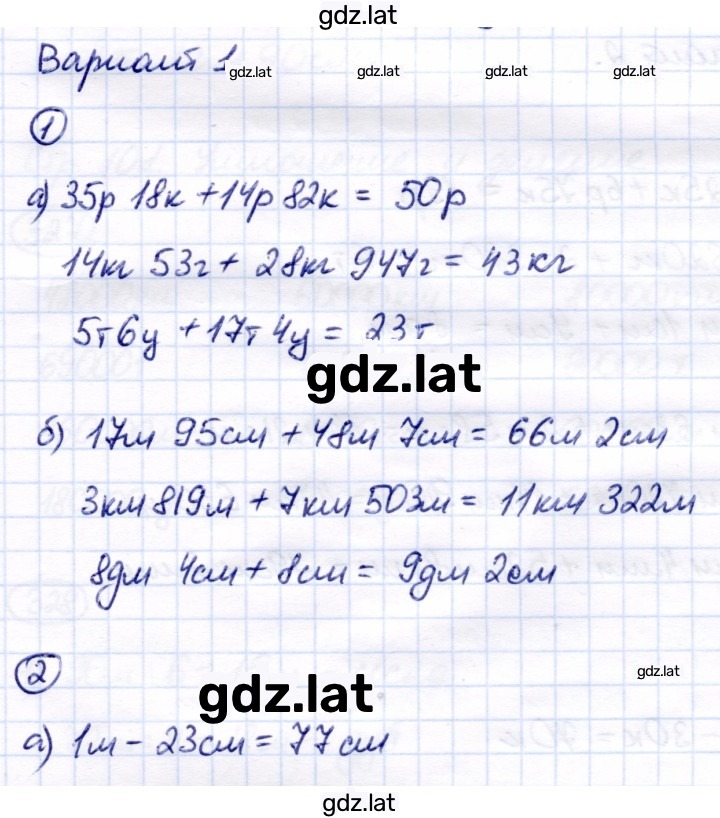 gdz.lat
Вариант 1
gdz.lat gdz.lat gdz.lat gdz.lat
1
а) 35р 18к + 14р 82к = 50р
14кг 53г + 28кг 947г = 43кг
5т 6ц + 17т 4ц = 23т
gdz.lat
б) 17м 95см + 48м 7см = 66м 2см
3км 819м + 7км 503м = 11км 322м
8дм 4см + 8см = 9дм 2см
2
gdz.lat
gdz.lat
а) 1м - 23см = 77см
gdz.lat